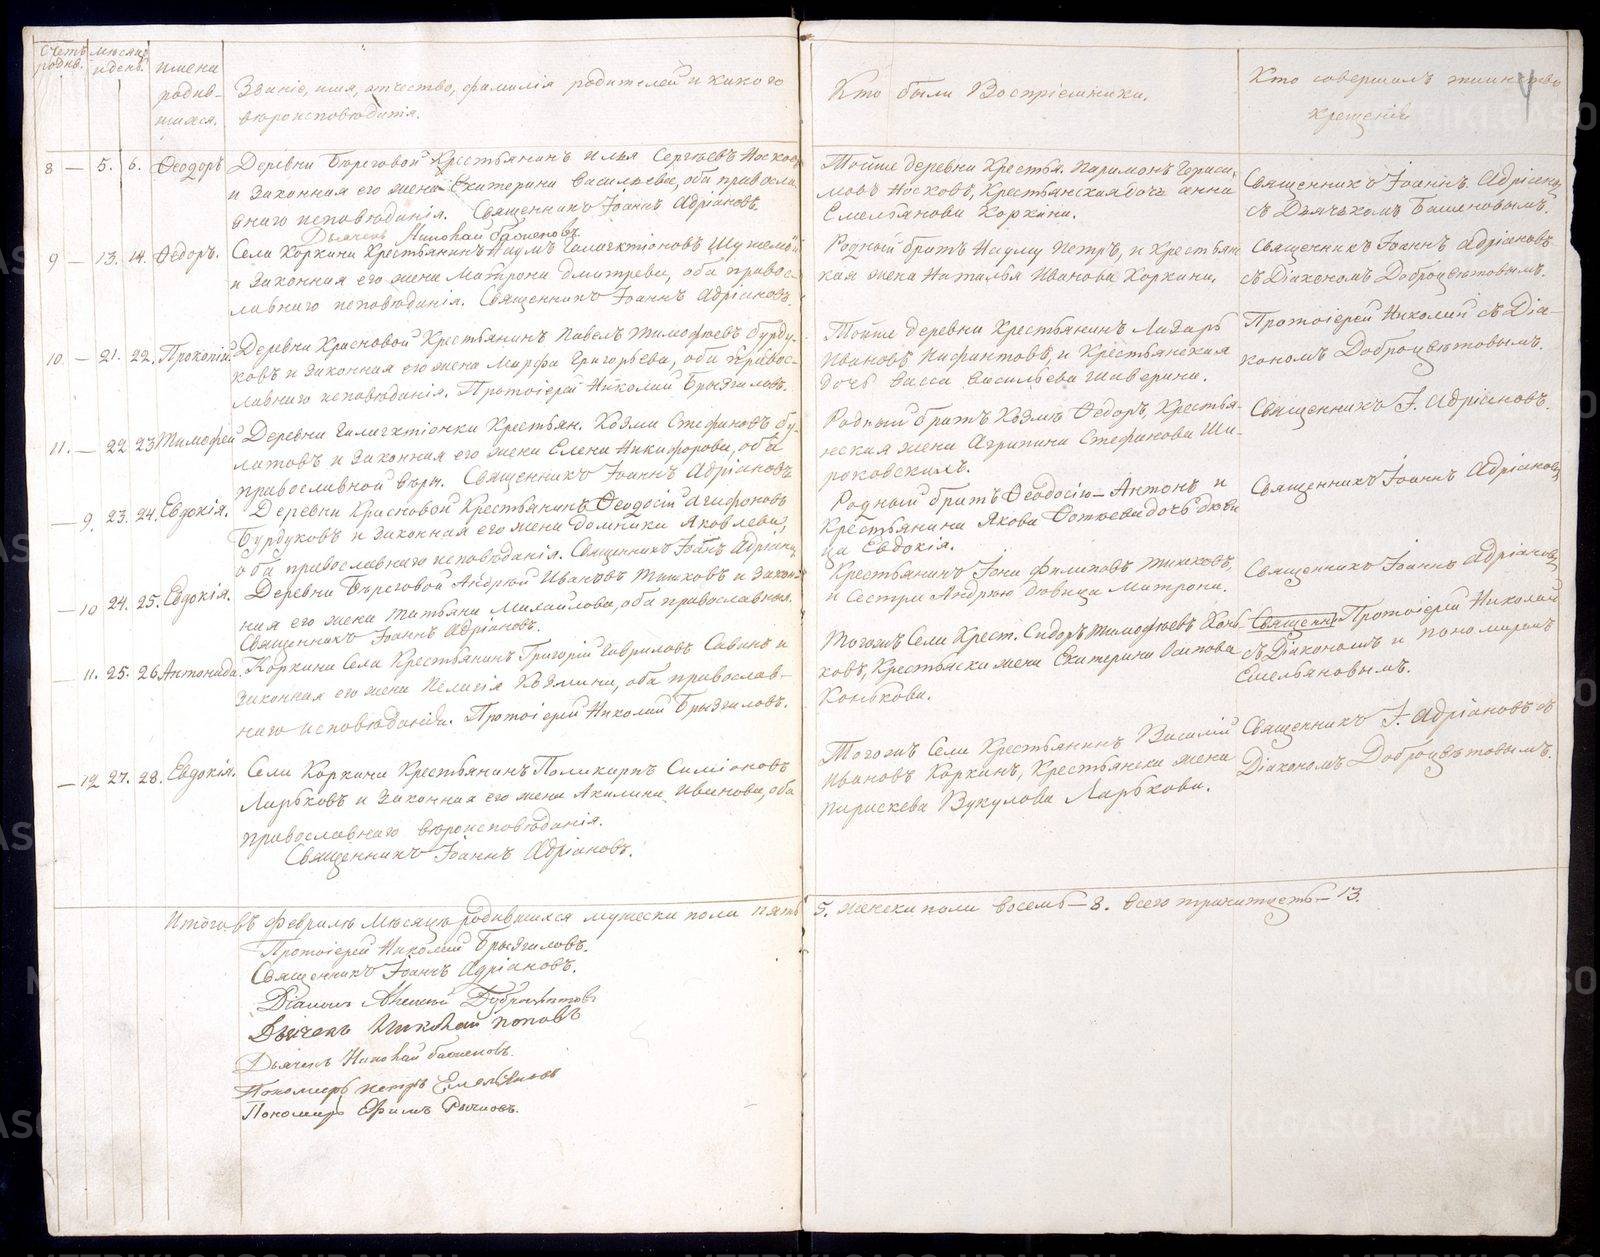 Счетъ родив.
Мѣсяцъ и день.
Имена родив-
шихся.
Званіе, имя, отчество, фамилія родителей и какого
вѣроисповѣданія.
Кто были Воспріемники.
Кто совершалъ таинство
крещенія
8 — 5. 6. Ѳеодоръ
Деревни Береговой Крестьянинъ Илья Сергѣевъ Носковъ
и законная его жена Екатерина Васильева, оба правосла
внаго исповѣданія. Священникъ Іоаннъ Адріановъ.
Дьячекъ Николай Баженовъ.
Тойже деревни Крестья. Парамонъ Гераси,
мовъ Носковъ, Крестьянская дочь Анна
Емельянова Коркина.
Священникъ Іоаннъ Адріановъ
съ Дьячькомъ Баженовымъ.
9 — 13. 14. Ѳедоръ.
Села Коркина Крестьянинъ Наумъ Галактіоновъ
и законная его жена Матрона Дмитрева, оба правос-
лавнаго исповѣданія. Священникъ Іоаннъ Адріановъ.
Родный братъ Науму Петръ, и Крестьян
кая жена Наталья Иванова Коркина.
Священникъ Іоаннъ Адріановъ
съ Діакономъ Доброцвѣтовымъ.
10 — 21. 22. Прокопій
Деревни Красновой Крестьянинъ Павелъ Тимофѣевъ Бурду-
ковъ и законная его жена Марфа Григорьева, оба правос-
лавнаго исповѣданія. Протоіерей Николай Брызгаловъ.
Тойже деревни Крестьянинъ Лазарь
Ивановъ Нифантовъ, и Крестьянская
дочь Васса Васильева Шаверина.
Протоіерей Николай съ Діа-
кономъ Доброцвѣтовымъ.
11. — 22 23 Тимофей
Деревни Галактіонки Крестьян. Козма Стефановъ Бу-
латовъ и законная его жена Елена Никифорова, оба
православной вѣры. Священникъ Іоаннъ Адріановъ
Родный братъ Козмѣ Ѳедоръ, Крестья-
нская жена Агрипина Стефанова Ши-
роковскихъ.
Священникъ І. Адріановъ.
— 9. 23. 24. Евдокія.
Деревни Красновой Крестьянинъ Ѳеодосій Агафоновъ
Бурдуковъ и законная его жена Домника Яковлева,
оба православнаго исповѣданія. Священникъ Іоаннъ Адріановъ
Родный братъ Ѳеодосію — Антонъ и
Крестьянина Якова Фотѣева дочь дѣви
ца Евдокія.
Священникъ Іоаннъ Адріановъ
— 10 24. 25. Евдокія.
Деревни Береговой Андрей Ивановъ Тишковъ и закон-
ная его жена Татьяна Михайлова, оба православныя.
Священникъ Іоаннъ Адріановъ.
Крестьянинъ Іона Филиповъ Тишковъ,
и сестра Андрею дѣвица Матрона.
Священникъ Іоаннъ Адріановъ
— 11. 25. 26 Антонида.
Коркина Села Крестьянинъ Григорій Гавриловъ Савинъ и
законная его жена Пелагія Козмина, оба православ-
наго исповѣданія. Протоіерей Николай Брызгаловъ.
Тогожъ Села Крест. Сидоръ Тимофѣевъ Конь
ковъ, Крестьяска жена Екатерина Осипова
Конькова.
Священни Протоіерей Николай
съ Діакономъ и пономаремъ
Емельяновымъ.
— 12 27. 28. Евдокія.
Села Коркина Крестьянинъ Поликарпъ Симіоновъ
Ларьковъ и законная его жена Акилина Иванова, оба
православнаго вѣроисповѣданія.
Священникъ Іоаннъ Адріановъ.
Тогожъ Села Крестьянинъ Василій
Ивановъ Коркинъ, Крестьянска жена
Параскева Вукулова Ларькова.
Священникъ І. Адріановъ съ
Діакономъ Доброцвѣтовымъ.
Итого въ Февралѣ Мѣсяцѣ родившихся мужеска пола пять 5. женска пола восемь — 8. всего тринатцеть — 13.
Протоіерей Николай Брызгаловъ.
Священникъ Іоаннъ Адріановъ.
Діаконъ Алексей Доброцвѣтовъ
Дьячекъ Николай Поповъ
Дьячекъ Николай Баженовъ.
Пономарь Петръ Емельяновъ
Пономарь Ефимъ Рычковъ.
METRIKI.GASO-URAL.RU